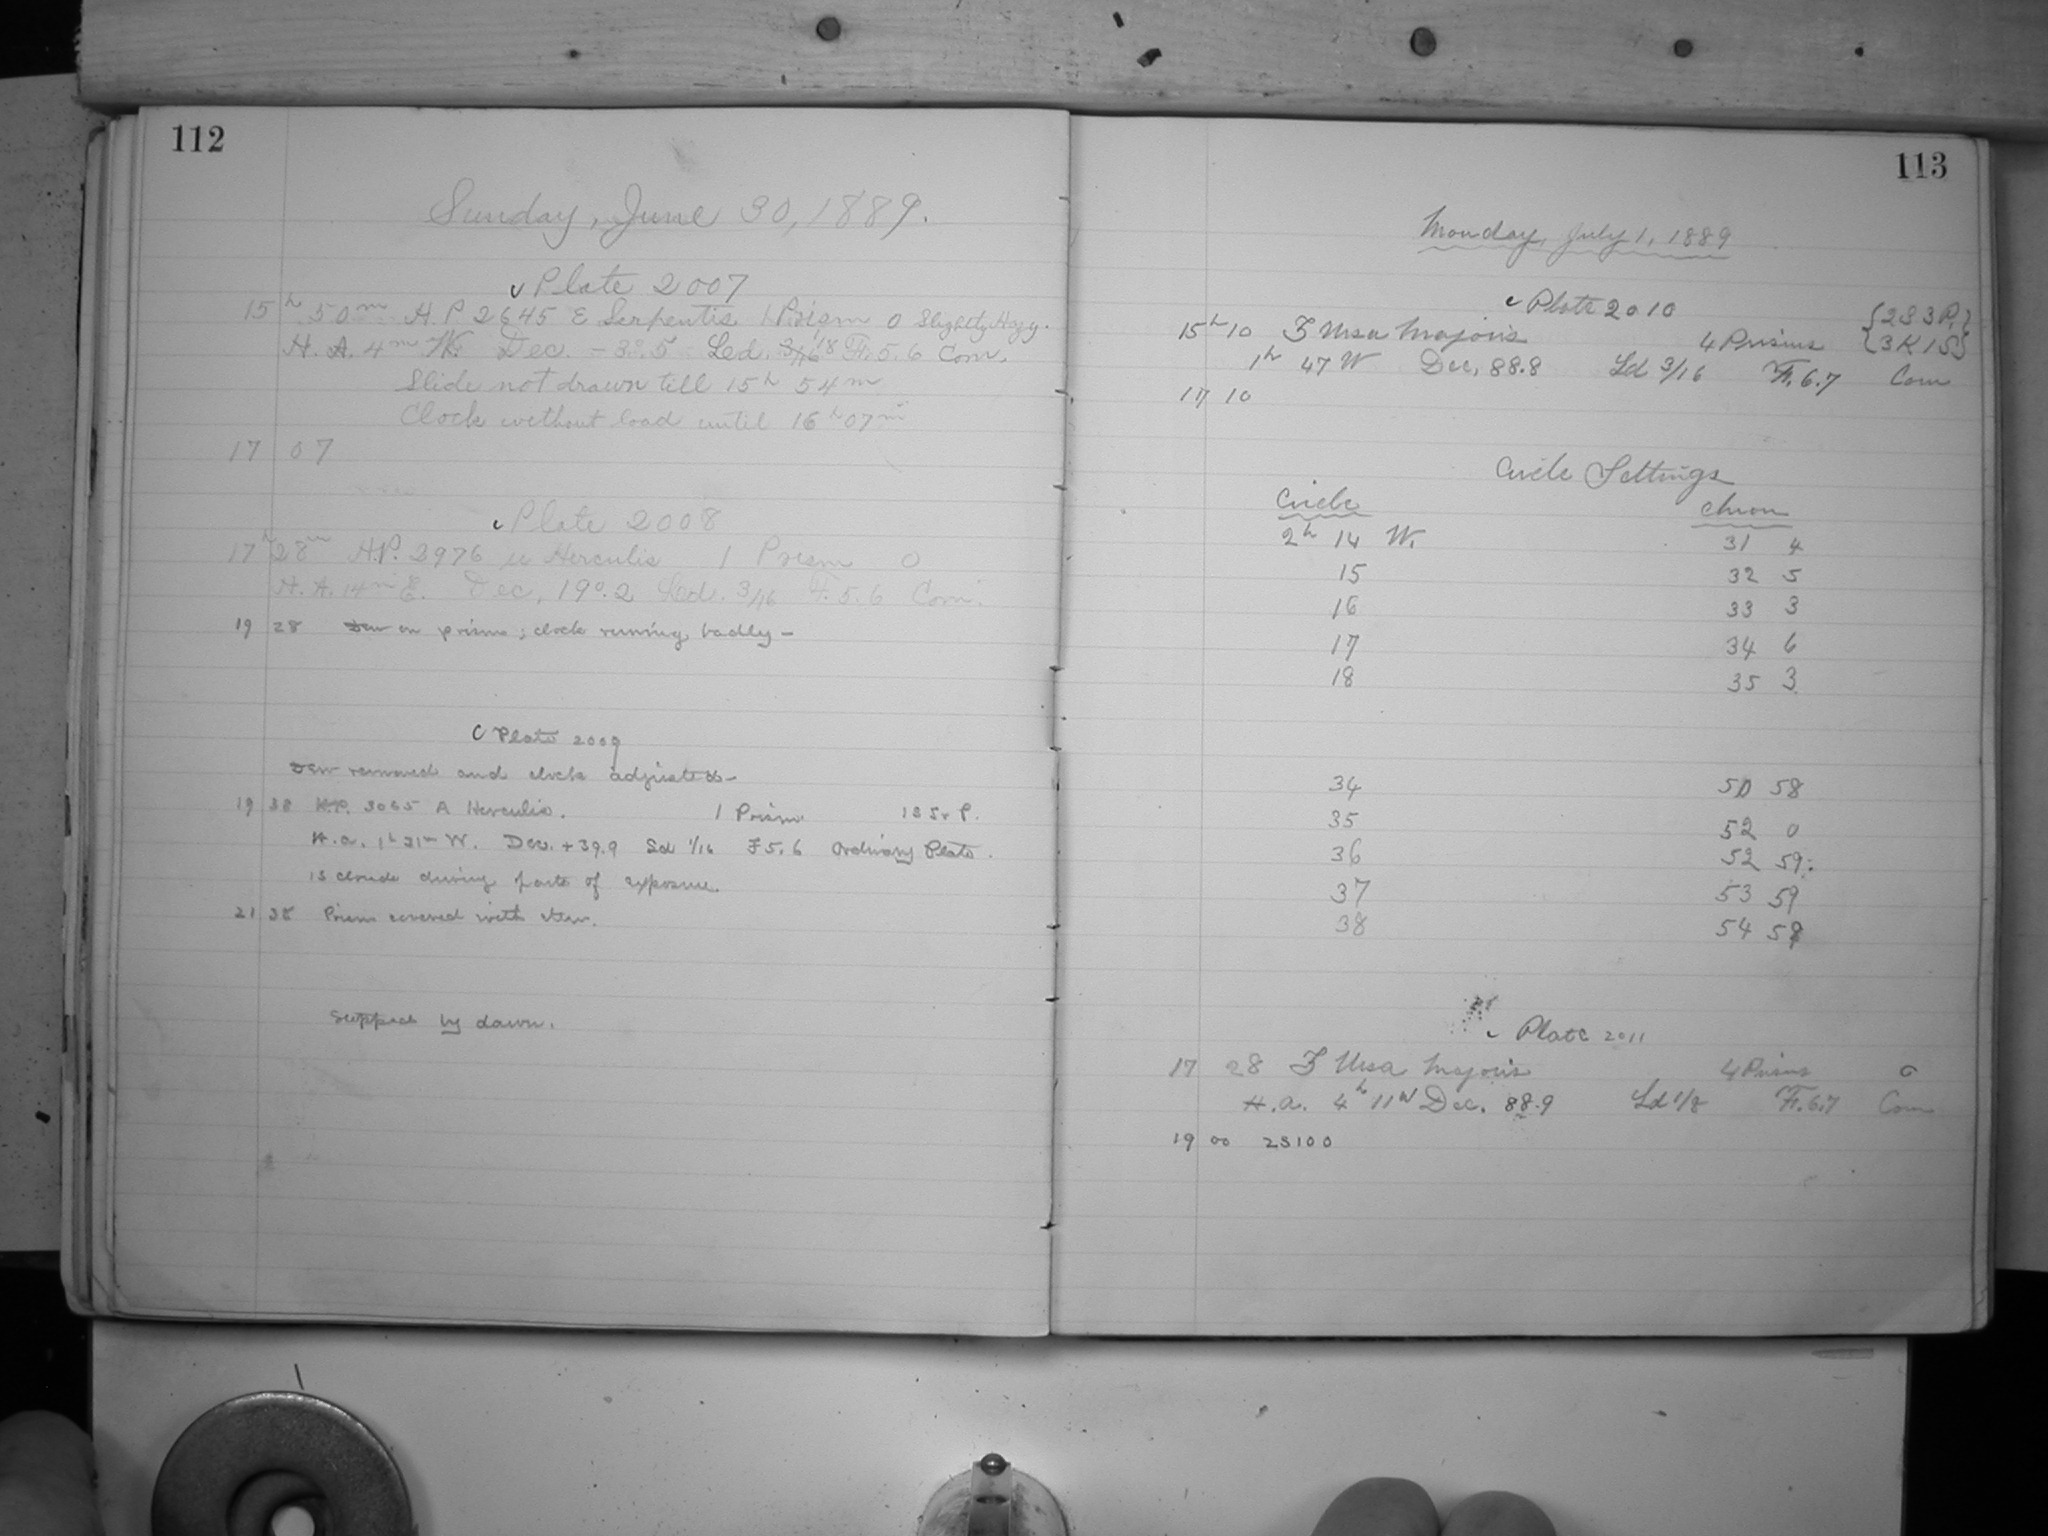 112
Sunday, June 30, 1889.
Plate 2007
15h 50m H.P. 2645 E Serpentis 1 Prism 0 Slightly Hazy.
H.A. 4m W. Dec. -3°.5 Led. 3/16 F. 5.6 Com.
Slide not drawn till 15h 54m
Clock without load until 16h 07m
17 07
Plate 2008
17h 28m H.P. 2976 u Herculis 1 Prism 0
H.A. 14m E. Dec. 19°.2 Led. 3/16 F. 5.6 Com.
19 28 Dew on prism; clock running badly-
Plate 2009
Dew removed and clock adjusted-
19 38 H.P. 3065 A Herculis. 1 Prism.
H.a. 1h 21m W. Dec. +39.9 Ld 1/16 F 5.6 Ordinary Plate.
is clouds during parts of exposure.
21 38 Prism covered with dew.
Stopped by dawn.
113
Monday, July 1, 1889
Plate 2010
15h 10 Ʒ Ursa Majoris 4 Prisms {2S3P.}
{3K1S}
1h 47 W Dec. 88.8 Ld 3/16 F. 6.7 Com
17 10
Circle Settings
Circle Chron
2h 14 W. 31 4
15 32 5
16 33 3
17 34 6
18 35 3
34 50 58
35 52 0
36 52 59
37 53 59
38 54 58
Plate 2011
17 28 Ʒ Ursa Majoris 4 Prisms 0
H.a. 4h 11 W Dec. 88.9 Ld 1/8 F. 6.7 Com
19 00 2S100